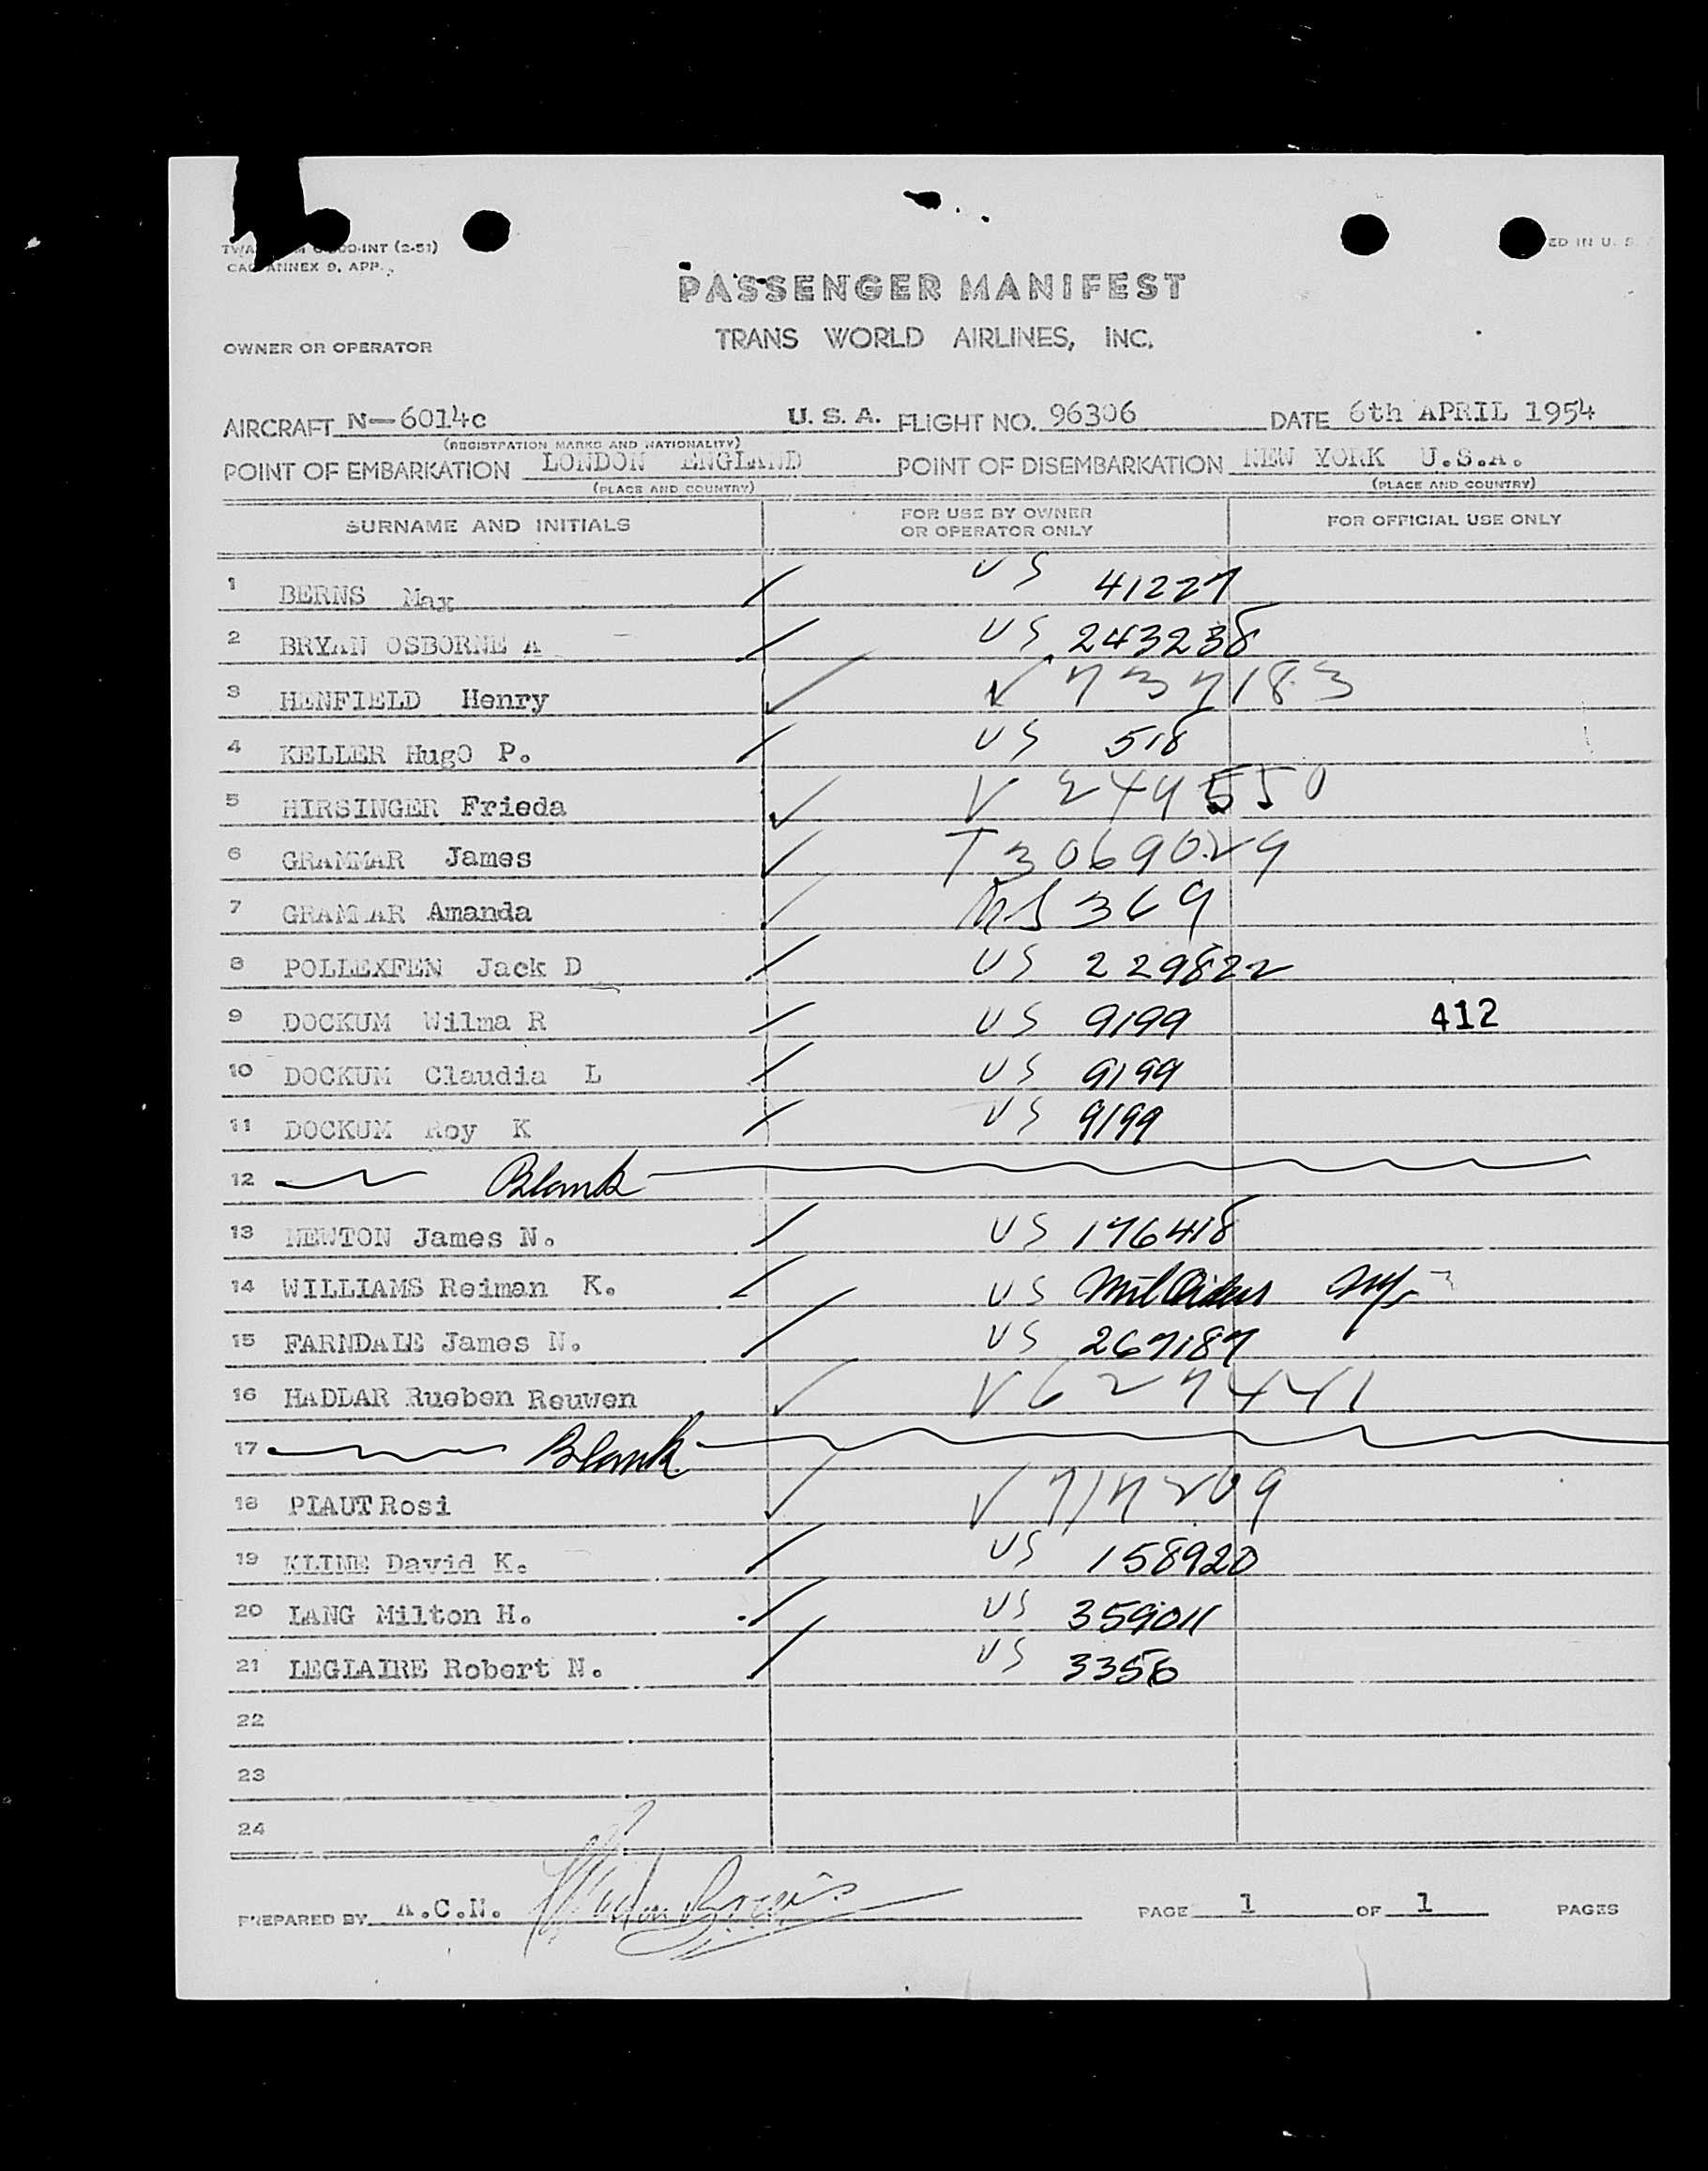 -INT (2-51)
ANNEX 9, APP.
ED IN U. S.
PASSENGER MANIFEST
OWNER OR OPERATOR TRANS WORLD AIRLINES, INC.
AIRCRAFT N-6014c U. S. A. FLIGHT NO. 96306 DATE 6th APRIL 1954
(REGISTRATION MARKS AND NATIONALITY)
POINT OF EMBARKATION LONDON ENGLAND POINT OF DISEMBARKATION NEW YORK U.S.A.
(PLACE AND COUNTRY) (PLACE AND COUNTRY)
SURNAME AND INITIALS FOR USE BY OWNER OR OPERATOR ONLY FOR OFFICIAL USE ONLY
1 BERNS Max US 41227
2 BRYAN OSBORNE A US 243238
3 HENFIELD Henry V 737183
4 KELLER HugO P. US 518
5 HIRSINGER Frieda V 244550
6 GRAMMAR James T 3069029
7 GRAMMAR Amanda 369
8 POLLEXFEN Jack D US 229822
9 DOCKUM Wilma R US 9199 412
10 DOCKUM Claudia L US 9199
11 DOCKUM Roy K US 9199
12 Blank
13 NEWTON James N. US 176418
14 WILLIAMS Reiman K. US Mil Orders
15 FARNDALE James N. US 267187
16 HADLAR Rueben Reuwen V 627441
17 Blank
18 PLAUT Rosi V 717209
19 KLINE David K. US 158920
20 LANG Milton H. US 359011
21 LEGLAIRE Robert N. US 3356
22
23
24
PREPARED BY A.C.N. PAGE 1 OF 1 PAGES